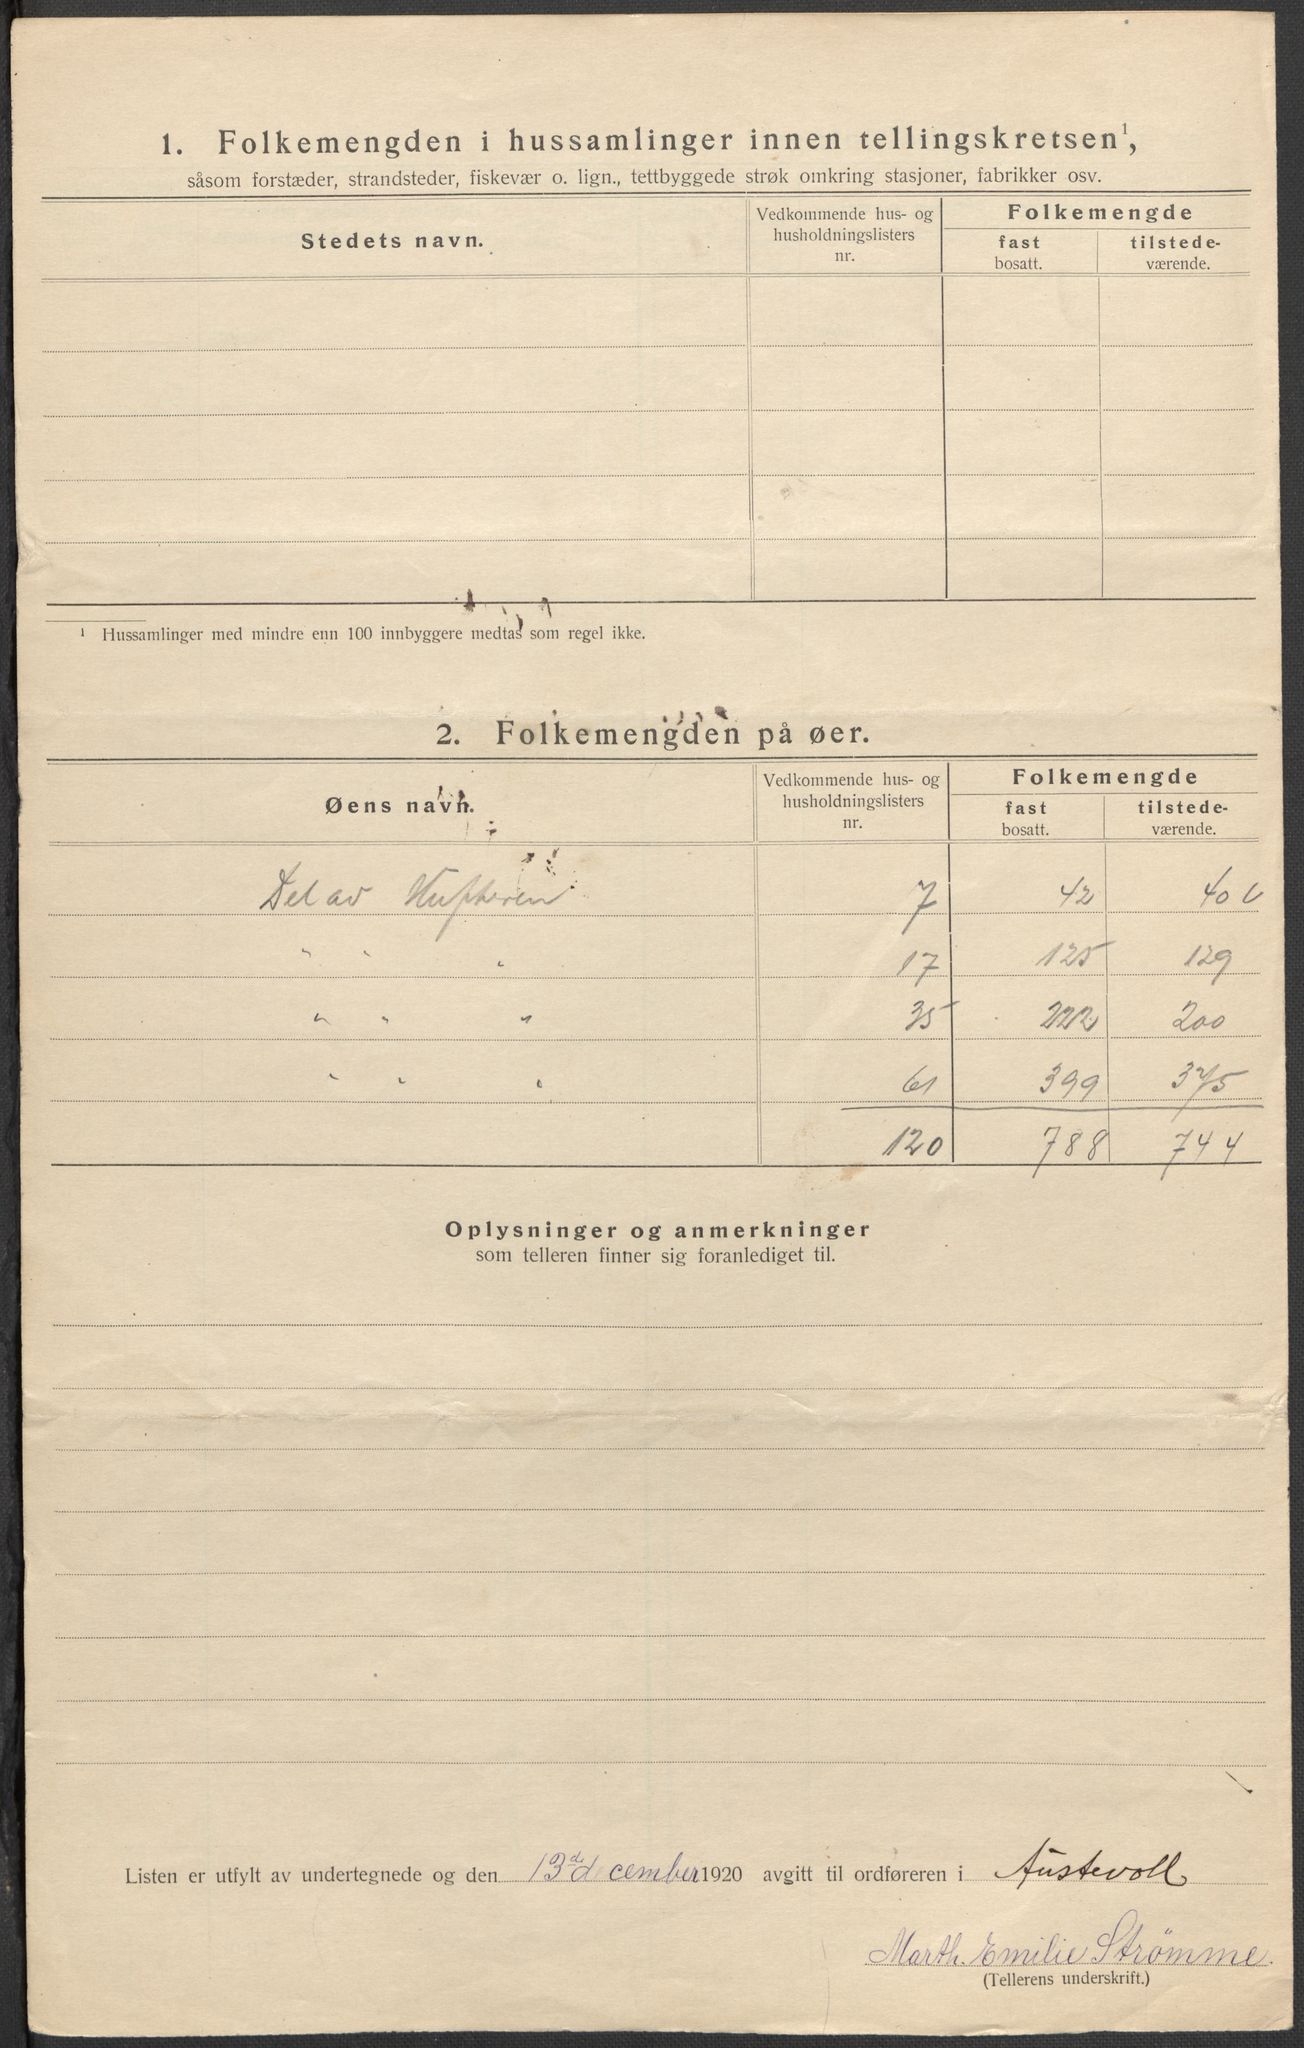 1. Folkemengden i hussamlinger innen tellingskretsen¹,
såsom forstæder, strandsteder, fiskevær o. lign., tettbyggede strøk omkring stasjoner, fabrikker osv.
Stedets navn.
Vedkommende hus- og husholdningslisters nr.
Folkemengde
fast bosatt.
tilstede-værende.
¹ Hussamlinger med mindre enn 100 innbyggere medtas som regel ikke.
2. Folkemengden på øer.
Øens navn.
Vedkommende hus- og husholdningslisters nr.
Folkemengde
fast bosatt.
tilstede-værende.
Del av Huftheren 7 42 40
" " " 17 125 129
" " " 35 222 200
" " " 61 399 375
120 788 744
Oplysninger og anmerkninger
som telleren finner sig foranlediget til.
Listen er utfylt av undertegnede og den 13de december 1920 avgitt til ordføreren i Austevoll
Marth. Emilie Strömme.
(Tellerens underskrift.)